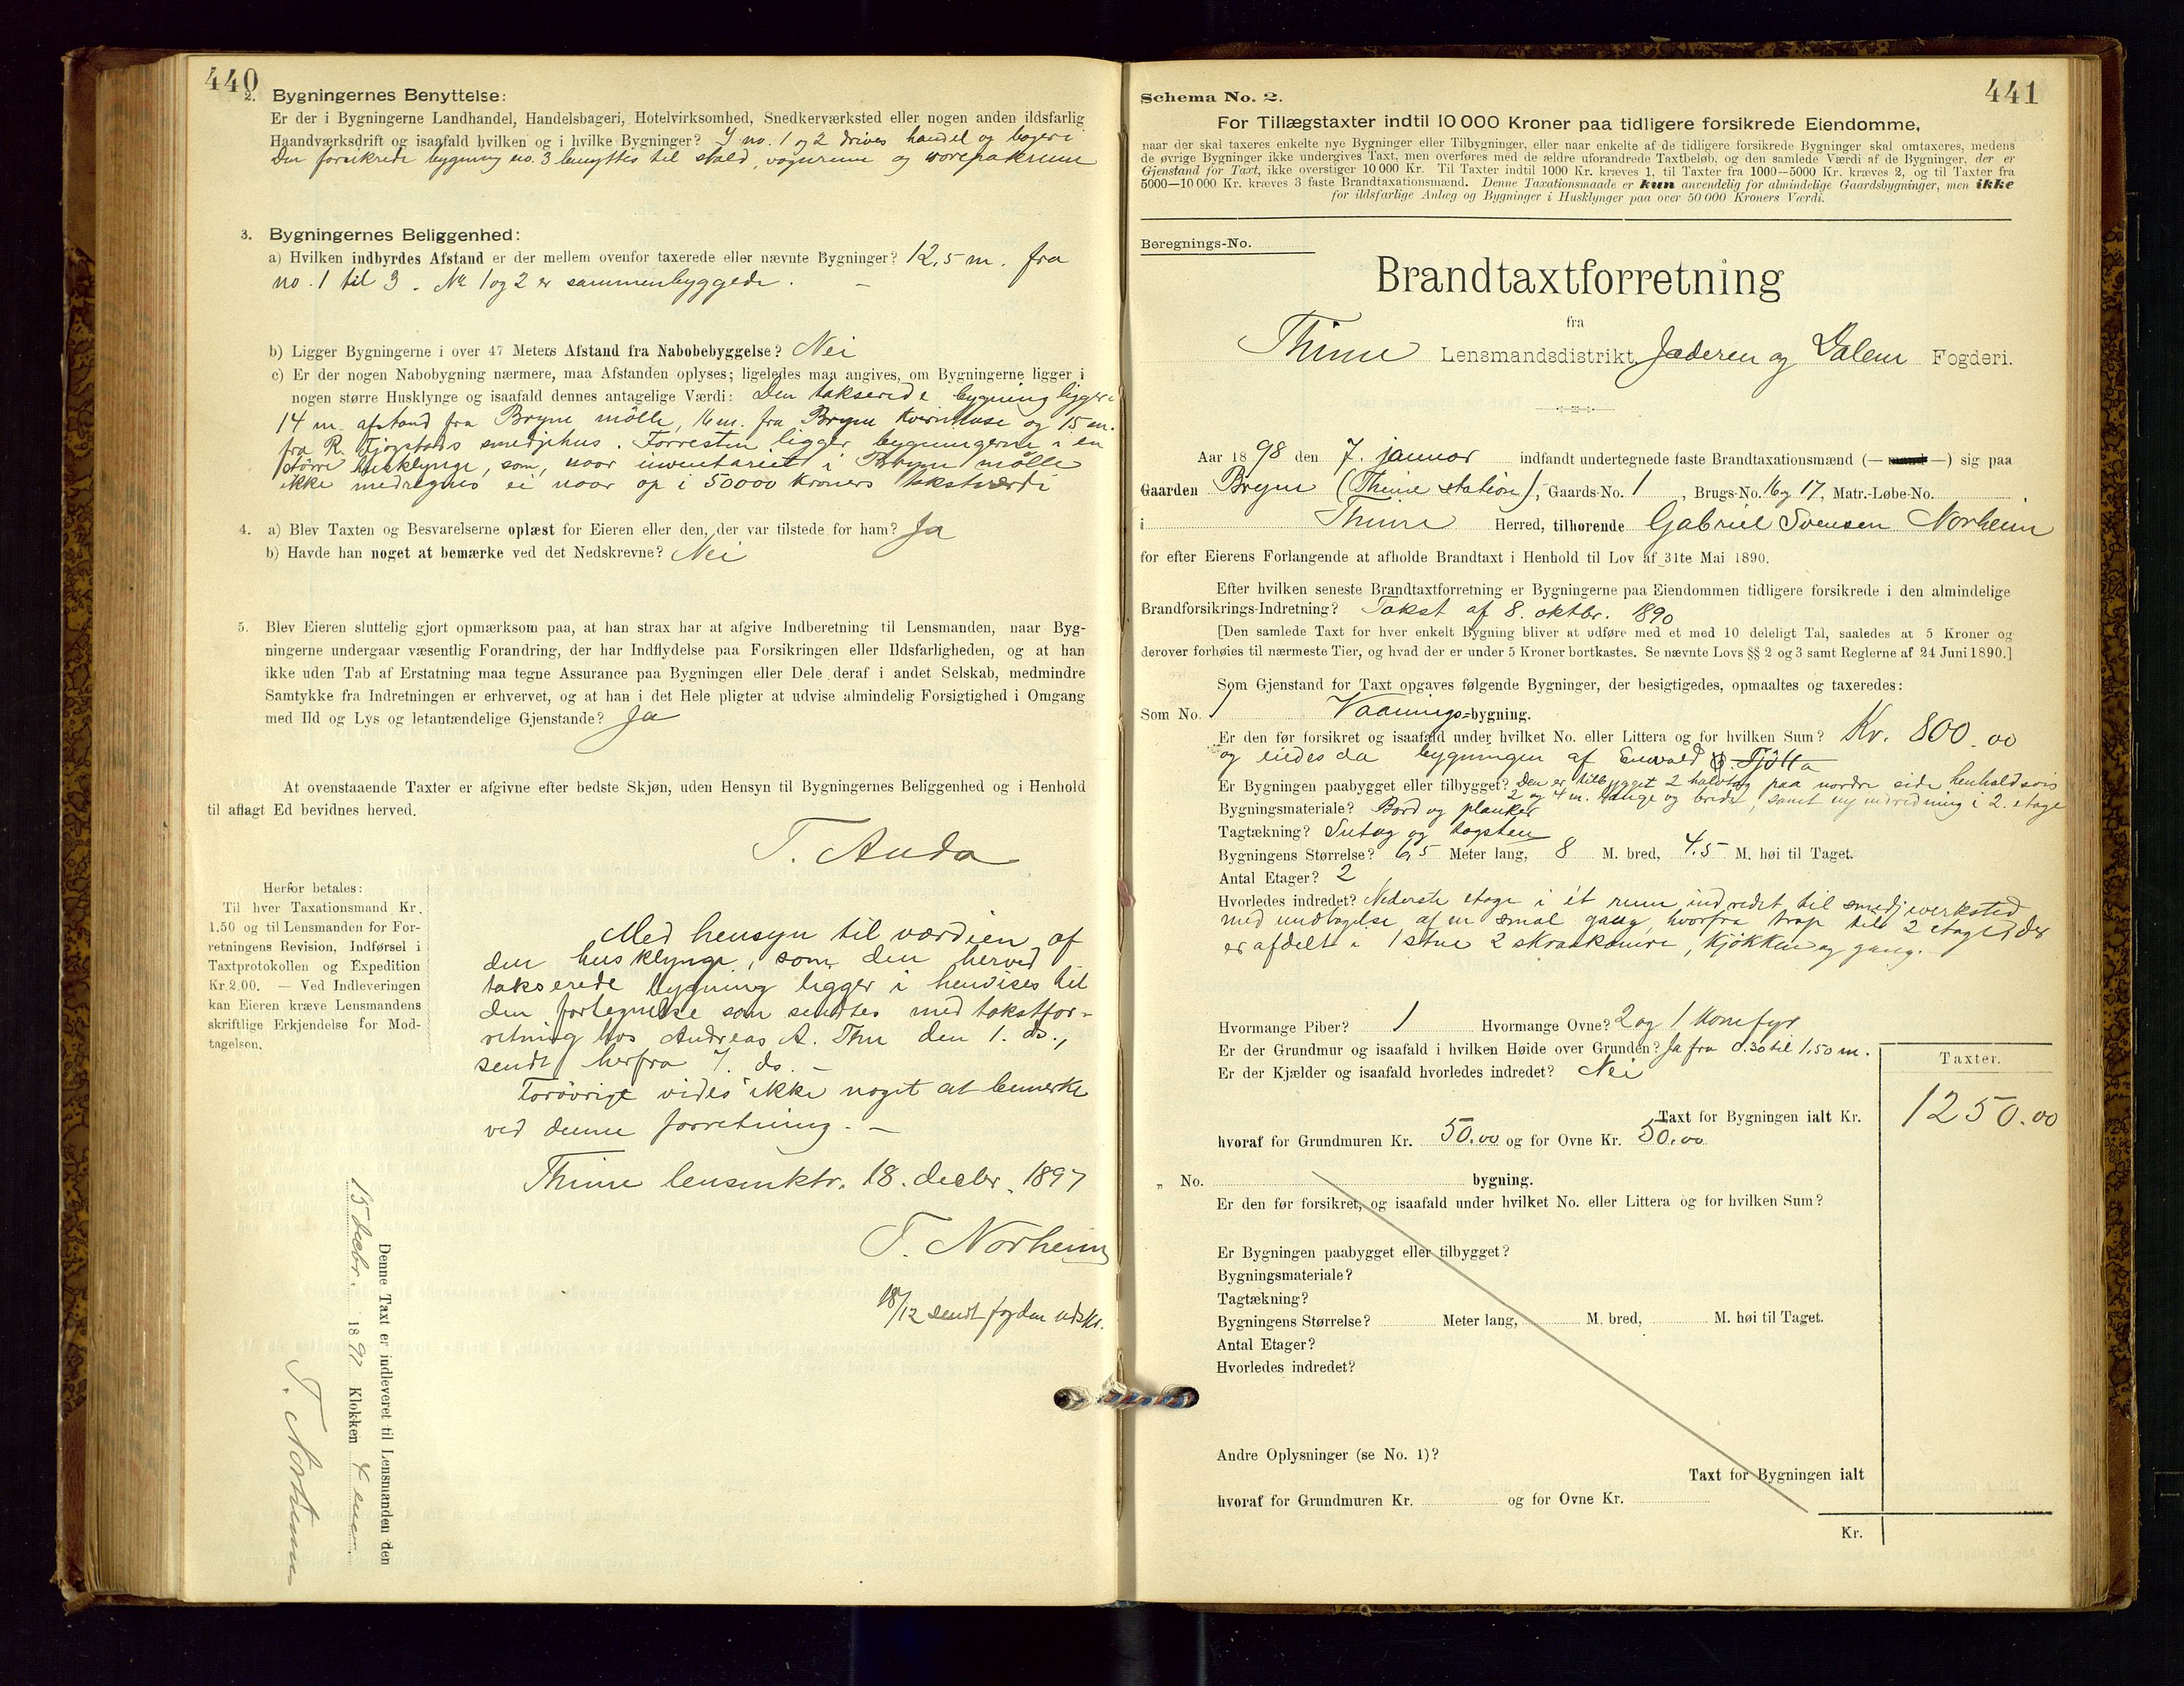 440
2. Bygningernes Benyttelse:
Er der i Bygningerne Landhandel, Handelsbageri, Hotelvirksomhed, Snedkerværksted eller nogen anden ildsfarlig
Haandværksdrift og isaafald hvilken og i hvilke Bygninger? I no. 1 og 2 drives handel og bageri
Den forsikrede bygning no. 3 benyttes til stald, vognrum og
3. Bygningernes Beliggenhed:
a) Hvilken indbyrdes Afstand er der mellem ovenfor taxerede eller nævnte Bygninger? 12,5 m. fra
no. 1 til 3. No 1 og 2 er sammenbyggede.
b) Ligger Bygningerne i over 47 Meters Afstand fra Nabobebyggelse? Nei
c) Er der nogen Nabobygning nærmere, maa Afstanden oplyses; ligeledes maa angives, om Bygningerne ligger i
nogen større Husklynge og isaafald dennes antagelige Værdi: Den takserede bygning ligger i
14 m. afstand fra Bryne mølle, 16 m. fra Bryne kvernhuse og 15 m.
fra R. smedjehus. Forresten ligger bygningerne i en
større husklynge, som, naar inventariet i Bryne mølle
ikke medregnes ei naar op i 50000 kroners takstværdi
4. a) Blev Taxten og Besvarelserne oplæst for Eieren eller den, der var tilstede for ham? Ja
b) Havde han noget at bemærke ved det Nedskrevne? Nei
5. Blev Eieren sluttelig gjort opmærksom paa, at han strax har at afgive Indberetning til Lensmanden, naar Byg-
ningerne undergaar væsentlig Forandring, der har Indflydelse paa Forsikringen eller Ildsfarligheden, og at han
ikke uden Tab af Erstatning maa tegne Assurance paa Bygningen eller Dele deraf i andet Selskab, medmindre
Samtykke fra Indretningen er erhvervet, og at han i det Hele pligter at udvise almindelig Forsigtighed i Omgang
med Ild og Lys og letantændelige Gjenstande? Ja
At ovenstaaende Taxter er afgivne efter bedste Skjøn, uden Hensyn til Bygningernes Beliggenhed og i Henhold
til aflagt Ed bevidnes herved.
T. Anda
Herfor betales:
Til hver Taxationsmand Kr.
1.50 og til Lensmanden for For-
retningens Revision, Indførsel i
Taxtprotokollen og Expedition
Kr. 2.00. — Ved Indleveringen
kan Eieren kræve Lensmandens
skriftlige Erkjendelse for Mod-
tagelsen.
Med hensyn til værdien af
den husklynge, som den herved
takserede bygning ligger i henvises til
den fortegnelse som sendtes med takstfor-
retning hos Andreas A. Thu den 1. ds.,
sendt herfra 7. ds. -
Forøvrigt vides ikke noget at bemerke
ved denne forretning. -
Thime lensmktr. 18. decbr. 1897
T. Norheim
18/12 sendt fogden udskr.
Denne Taxt er indleveret til Lensmanden den
15 decbr. 1897 Klokken 4
T. Norheim
441
Schema No. 2.
For Tillægstaxter indtil 10 000 Kroner paa tidligere forsikrede Eiendomme,
naar der skal taxeres enkelte nye Bygninger eller Tilbygninger, eller naar enkelte af de tidligere forsikrede Bygninger skal omtaxeres, medens
de øvrige Bygninger ikke undergives Taxt, men overføres med de ældre uforandrede Taxtbeløb, og den samlede Værdi af de Bygninger, der er
Gjenstand for Taxt, ikke overstiger 10 000 Kr. Til Taxter indtil 1000 Kr. kræves 1, til Taxter fra 1000—5000 Kr. kræves 2, og til Taxter fra
5000—10 000 Kr. kræves 3 faste Brandtaxationsmænd. Denne Taxationsmaade er kun anvendelig for almindelige Gaardsbygninger, men ikke
for ildsfarlige Anlæg og Bygninger i Husklynger paa over 50 000 Kroners Værdi.
Beregnings-No.
Brandtaxtforretning
fra
Thime Lensmandsdistrikt, Jæderen og Dalene Fogderi.
Aar 1898 den 7. januar indfandt undertegnede faste Brandtaxationsmænd (— mand —) sig paa
Gaarden Bryne (Thime station), Gaards-No. 1, Brugs-No. 16 og 17, Matr.-Løbe-No.
i Thime Herred, tilhørende Gabriel Svensen Norheim
for efter Eierens Forlangende at afholde Brandtaxt i Henhold til Lov af 31te Mai 1890.
Efter hvilken seneste Brandtaxtforretning er Bygningerne paa Eiendommen tidligere forsikrede i den almindelige
Brandforsikrings-Indretning? Takst af 8. oktbr. 1890
[Den samlede Taxt for hver enkelt Bygning bliver at udføre med et med 10 deleligt Tal, saaledes at 5 Kroner og
derover forhøies til nærmeste Tier, og hvad der er under 5 Kroner bortkastes. Se nævnte Lovs §§ 2 og 3 samt Reglerne af 24 Juni 1890.]
Som Gjenstand for Taxt opgaves følgende Bygninger, der besigtigedes, opmaaltes og taxeredes:
Som No. 1 Vaanings-bygning.
Er den før forsikret og isaafald under hvilket No. eller Littera og for hvilken Sum? Kr. 800.00
og eiedes da bygningen af Tjøtta
Er Bygningen paabygget eller tilbygget? Den er tilbygget 2 halvtag paa nordre side henholdsvis
2 og 4 m. lange og brede, samt ny indredning i 2. etage
Bygningsmateriale? Bord og planker
Tagtækning? Sutag og tagsten
Bygningens Størrelse? 6,5 Meter lang, 8 M. bred, 4.5 M. høi til Taget.
Antal Etager? 2
Hvorledes indredet? Nederste etage i ét rum, indredet til smedjeverksted
med undtagelse af en smal gang, hvorfra trap til 2 etage, der
er afdelt i 1 stue 2 skraakamre, kjøkken og gang.
Hvormange Piber? 1 Hvormange Ovne? 2 og 1 komfyr
Er der Grundmur og isaafald i hvilken Høide over Grunden? Ja fra 0.30 til 1.50 m.
Er der Kjælder og isaafald hvorledes indredet? Nei
Taxter.
Taxt for Bygningen ialt Kr. 1250.00
hvoraf for Grundmuren Kr. 50.00 og for Ovne Kr. 50.00
„ No. bygning.
Er den før forsikret, og isaafald under hvilket No. eller Littera og for hvilken Sum?
Er Bygningen paabygget eller tilbygget?
Bygningsmateriale?
Tagtækning?
Bygningens Størrelse? Meter lang, M. bred, M. høi til Taget.
Antal Etager?
Hvorledes indredet?
Andre Oplysninger (se No. 1)?
Taxt for Bygningen ialt
hvoraf for Grundmuren Kr. og for Ovne Kr.
Kr.